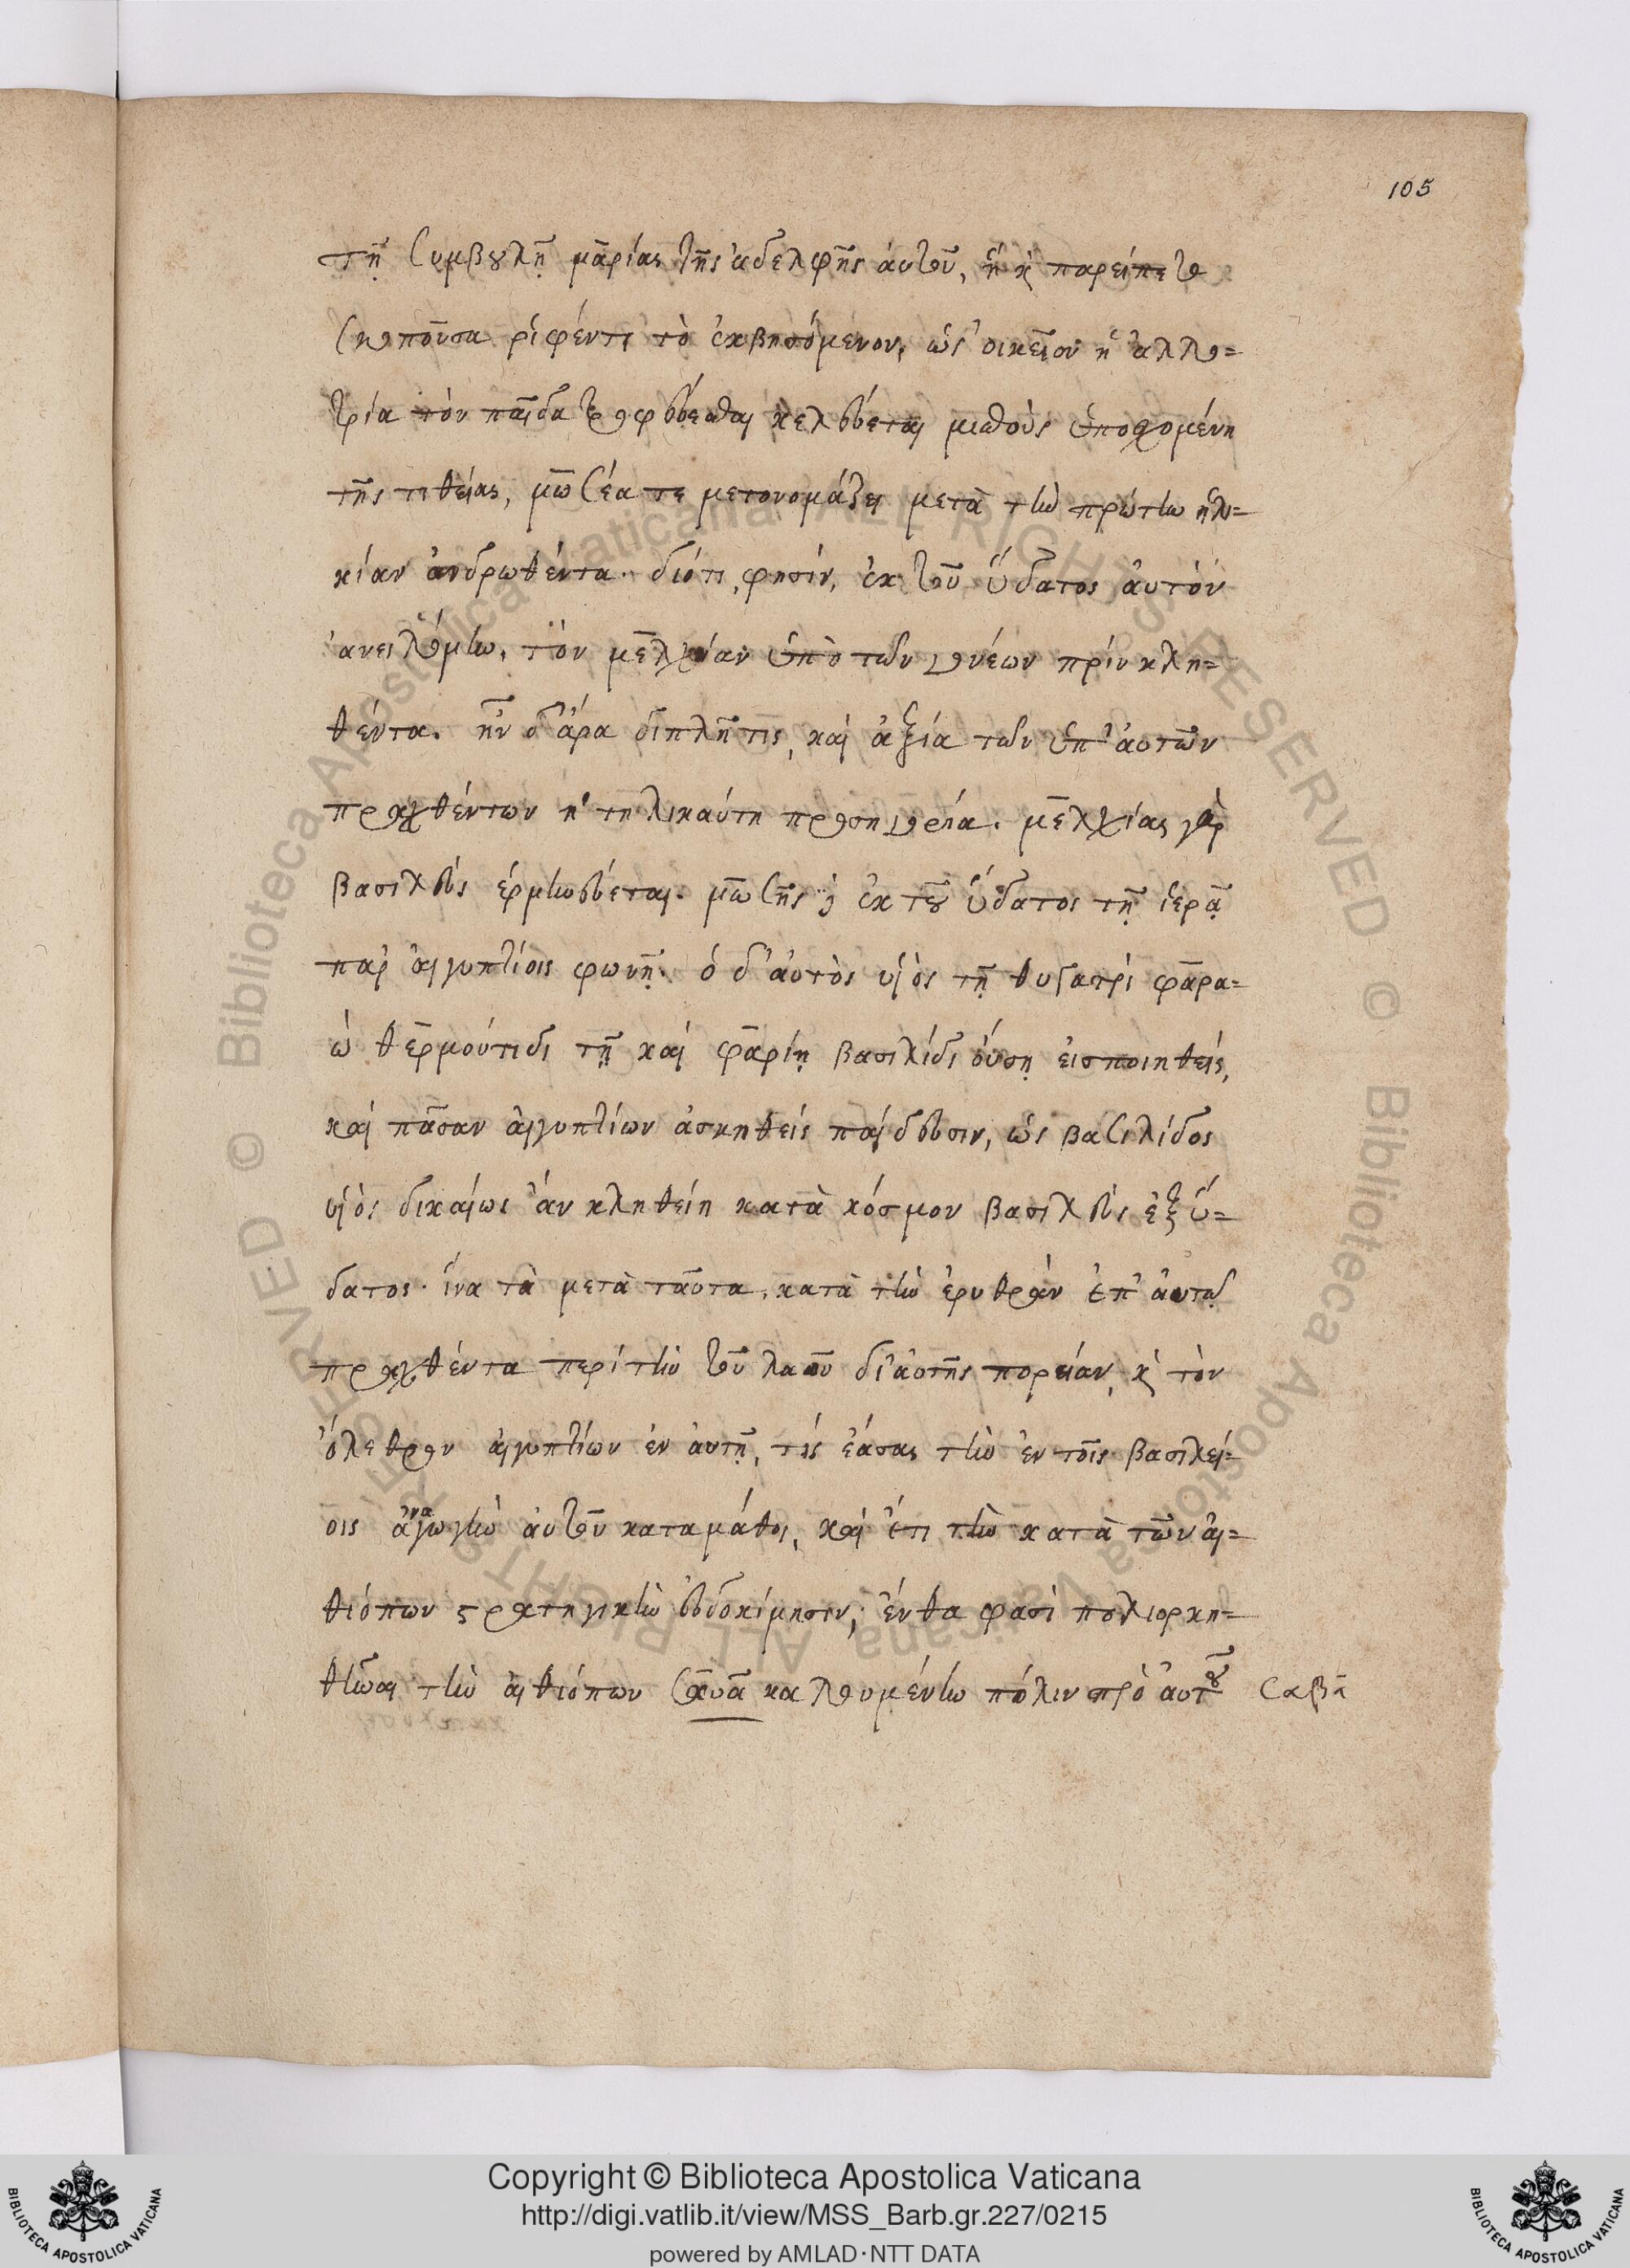 105
τῇ συμβουλῇ μαρίας τῆς ἀδελφῆς αὐτοῦ, ἣ καὶ παρείπετο
σκοποῦσα ῥιφέντι τὸ ἐκβησόμενον, ὡς οἰκεῖον ἡ ἀλλο=
τρία τὸν παῖδα τρέφεσθαι κελεύεται μισθοὺς ὑποσχομένη
τῆς τιθείας, μωσέα τε μετονομάζει μετὰ τὴν πρώτην ἡλι=
κίαν ἀνδρωθέντα. διότι, φησὶν, ἐκ τοῦ ὕδατος αὐτὸν
ἀνειλόμην, τὸν μελχίαν ὑπὸ τῶν γονέων πρὶν κλη=
θέντα. ἦν δ' ἄρα διπλῆ τις, καὶ ἀξία τῶν ὑπ' αὐτῶν
πραχθέντων ἡ τηλικαύτη προσηγορία. μελχίας γὰρ
βασιλεὺς ἑρμηνεύεται. μωσῆς δὲ ἐκ τοῦ ὕδατος τῇ ἱερᾷ
παρ' αἰγυπτίοις φωνῇ. ὁ δ' αὐτὸς υἱὸς τῇ θυγατρὶ φαρα=
ὼ θερμούτιδι τῇ καὶ φαρίῃ βασιλίδι οὔσῃ εἰσποιηθεὶς,
καὶ πᾶσαν αἰγυπτίων ἀσκηθεὶς παίδευσιν, ὡς βασιλίδος
υἱὸς δικαίως ἂν κληθείη κατὰ κόσμον βασιλεὺς ἐξ ὕ=
δατος. ἵνα τὰ μετὰ ταῦτα, κατὰ τὴν ἐρυθρὰν ἐπ' αὐτῷ
πραχθέντα περὶ τὴν τοῦ λαοῦ δι' αὐτῆς πορείαν, καὶ τὸν
ὄλεθρον αἰγυπτίων ἐν αὐτῇ, τίς ἐάσας τὴν ἐν τοῖς βασιλεί=
οις ἀναγωγὴν αὐτοῦ καταμάθοι, καὶ ἔτι τὴν κατὰ τῶν αἰ=
θιόπων στρατηγικὴν εὐδοκίμησιν; ἔνθα φασὶ πολιορκη=
θῆναι τὴν αἰθιόπων σαυὰ καλουμένην πόλιν πρὸ αὐτοῦ σαβᾶ
Copyright © Biblioteca Apostolica Vaticana
http://digi.vatlib.it/view/MSS_Barb.gr.227/0215
powered by AMLAD·NTT DATA
BIBLIOTECA APOSTOLICA VATICANA
BIBLIOTECA APOSTOLICA VATICANA